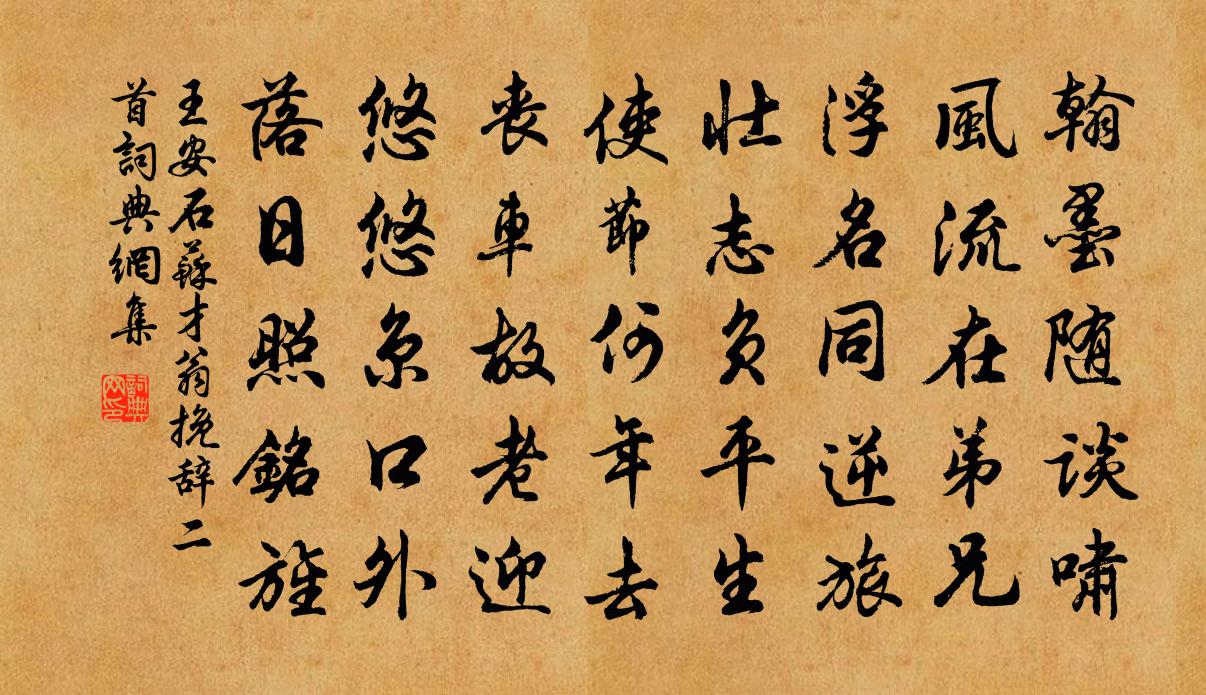 翰墨随谈啸
風流在弟兄
浮名同逆旅
壮志负平生
使節何年去
丧車故老迎
悠悠京口外
落日照銘旌
王安石蘇才翁挽辞二
首詞典網集
詞典网印